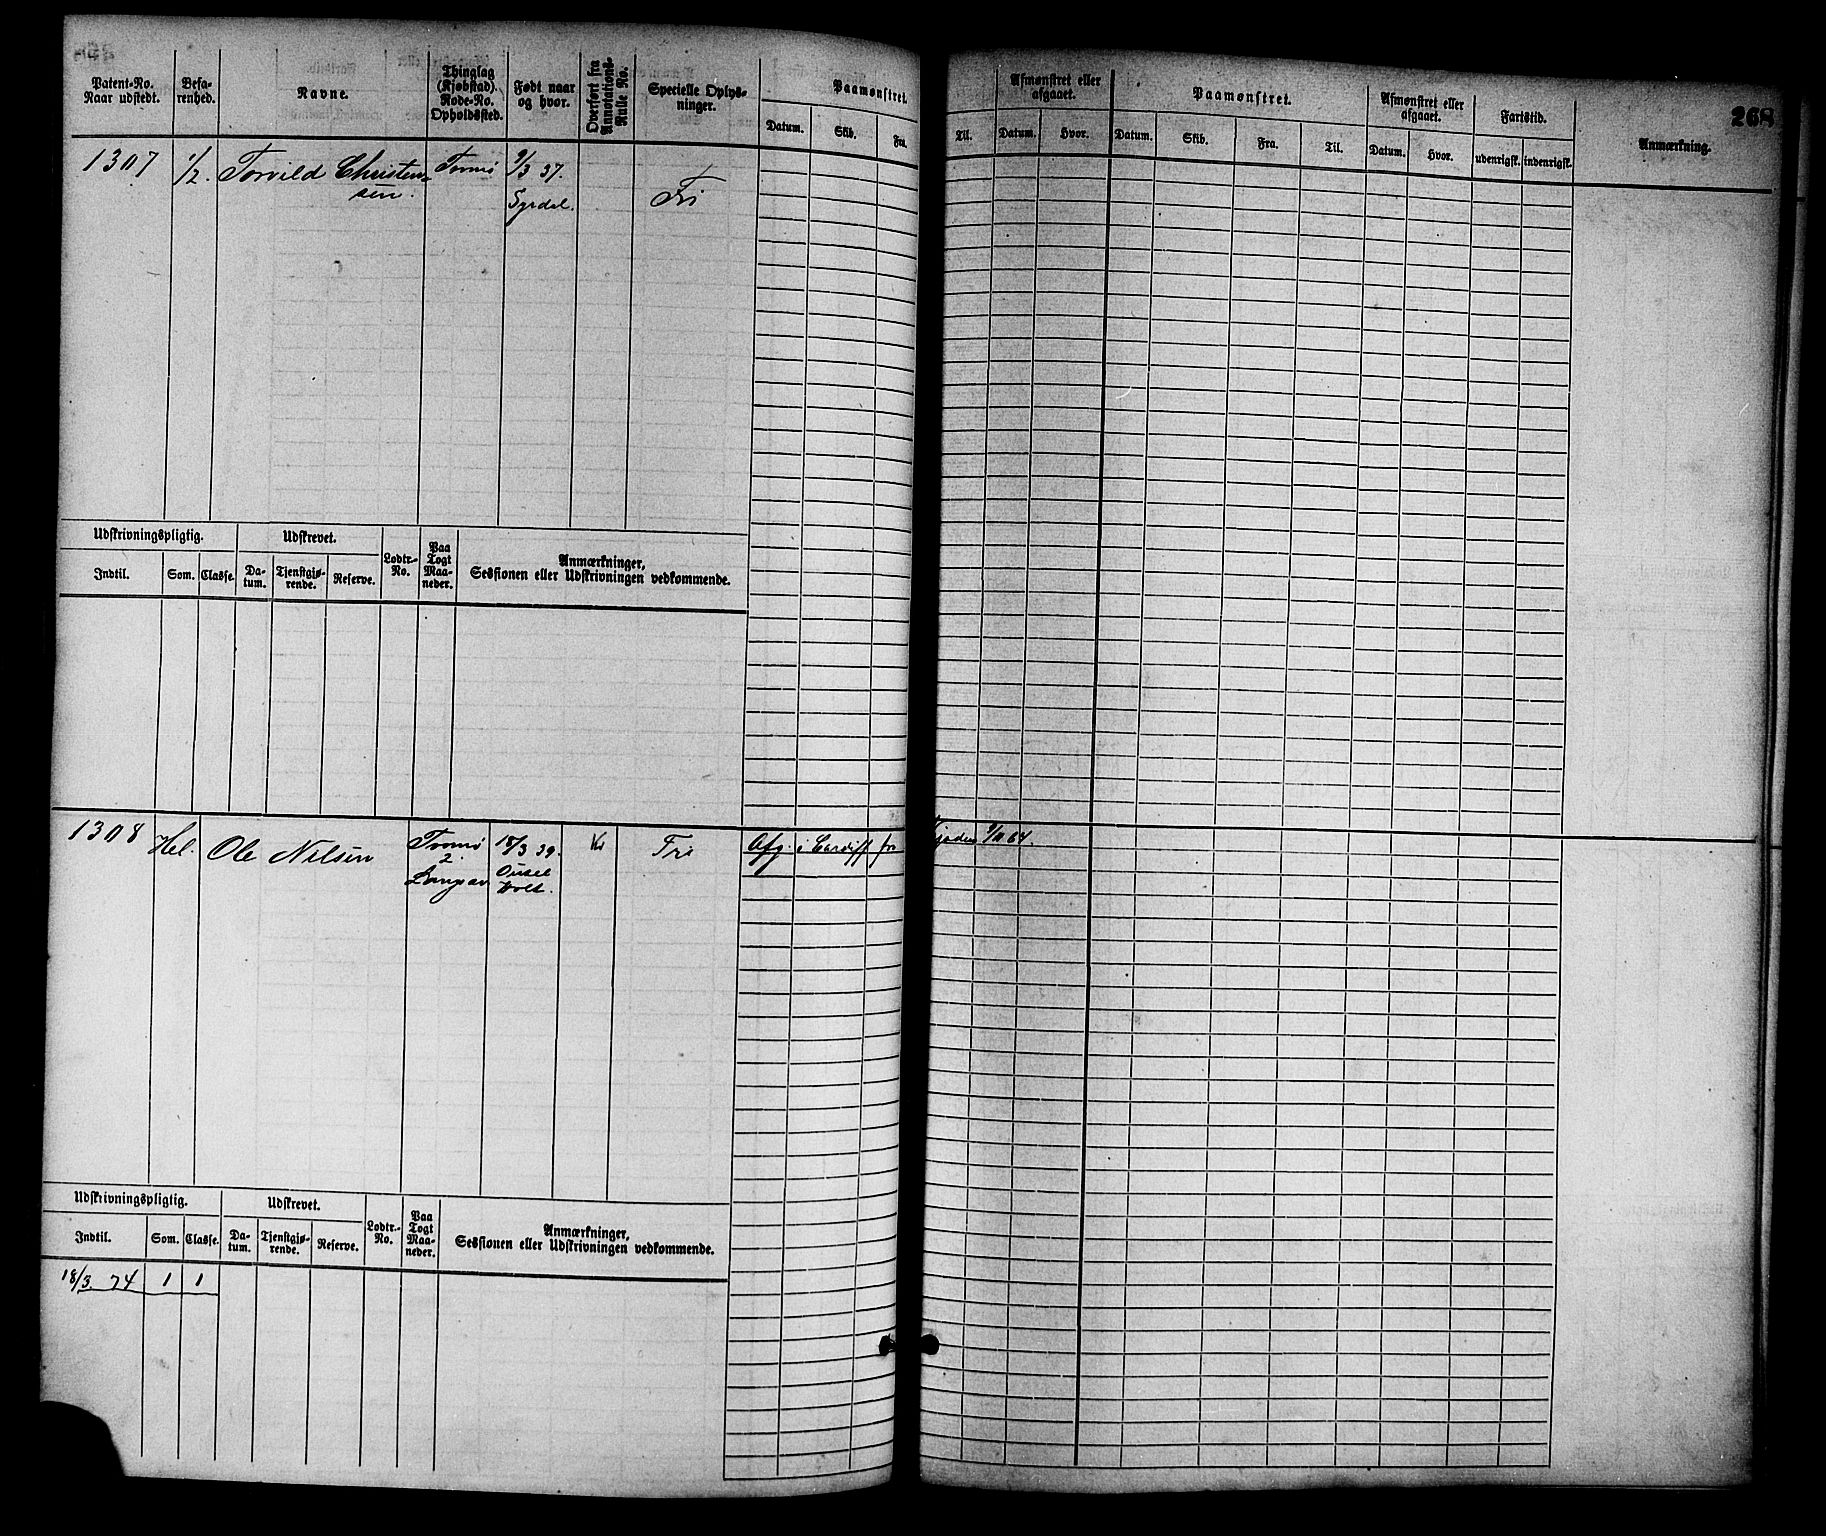 268
Patent-No. Naar udstedt.
Befarenhed.
Navne.
Thinglag (Kjøbstad). Rode-No. Opholdssted.
Født naar og hvor.
Overført fra Annotations-Rulle No.
Specielle Oplysninger.
Paamønstret.
Datum. Skib. Fra. Til.
Afmønstret eller afgaaet.
Datum. Hvor.
Paamønstret.
Datum. Skib. Fra. Til.
Afmønstret eller afgaaet.
Datum. Hvor.
Fartstid.
udenrigsk. indenrigsk.
Anmærkning.
1307 1/2. Torvild Christen-
sen.
Tromø
9/3 37.
Fri
Udskrivningspligtig.
Indtil. Som. Classe.
Udskrevet.
Datum. Tjenstgjørende. Reserve.
Lodtr.-No.
Paa Togt Maaneder.
Anmærkninger,
Sessionen eller Udskrivningen vedkommende.
1308 Hel. Ole Nilsen
Tromø
2.
18/3 39.
Holt.
Fri
Afg. i Cardiff fra
Udskrivningspligtig.
Indtil. Som. Classe.
Udskrevet.
Datum. Tjenstgjørende. Reserve.
Lodtr.-No.
Paa Togt Maaneder.
Anmærkninger,
Sessionen eller Udskrivningen vedkommende.
18/3 74 1 1